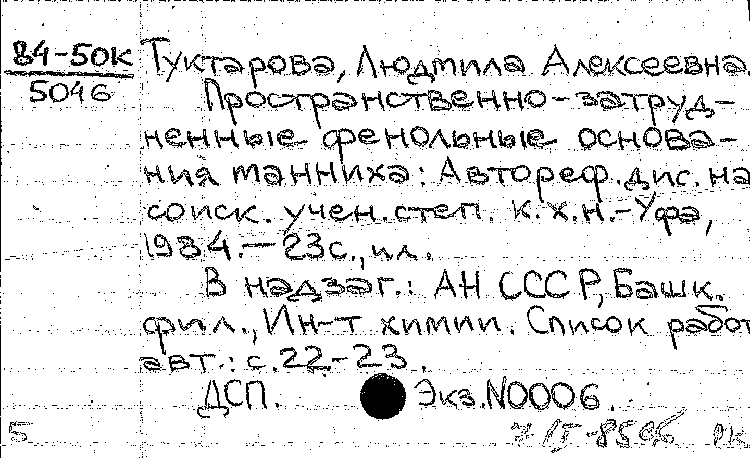 84-50К Туктарова, Людмила Алексеевна.
5046 Пространственно-затруд-
ненные фенольные основа-
ния манниха: Автореф. дис. на
соиск. учен. степ. к.х.н.-Уфа,
1984.-23с., ил.
В надзаг.: АН СССР, Башк.
фил., Ин-т химии. Список работ
авт.: с.22-23.
ДСП. Экз.N0006.
5